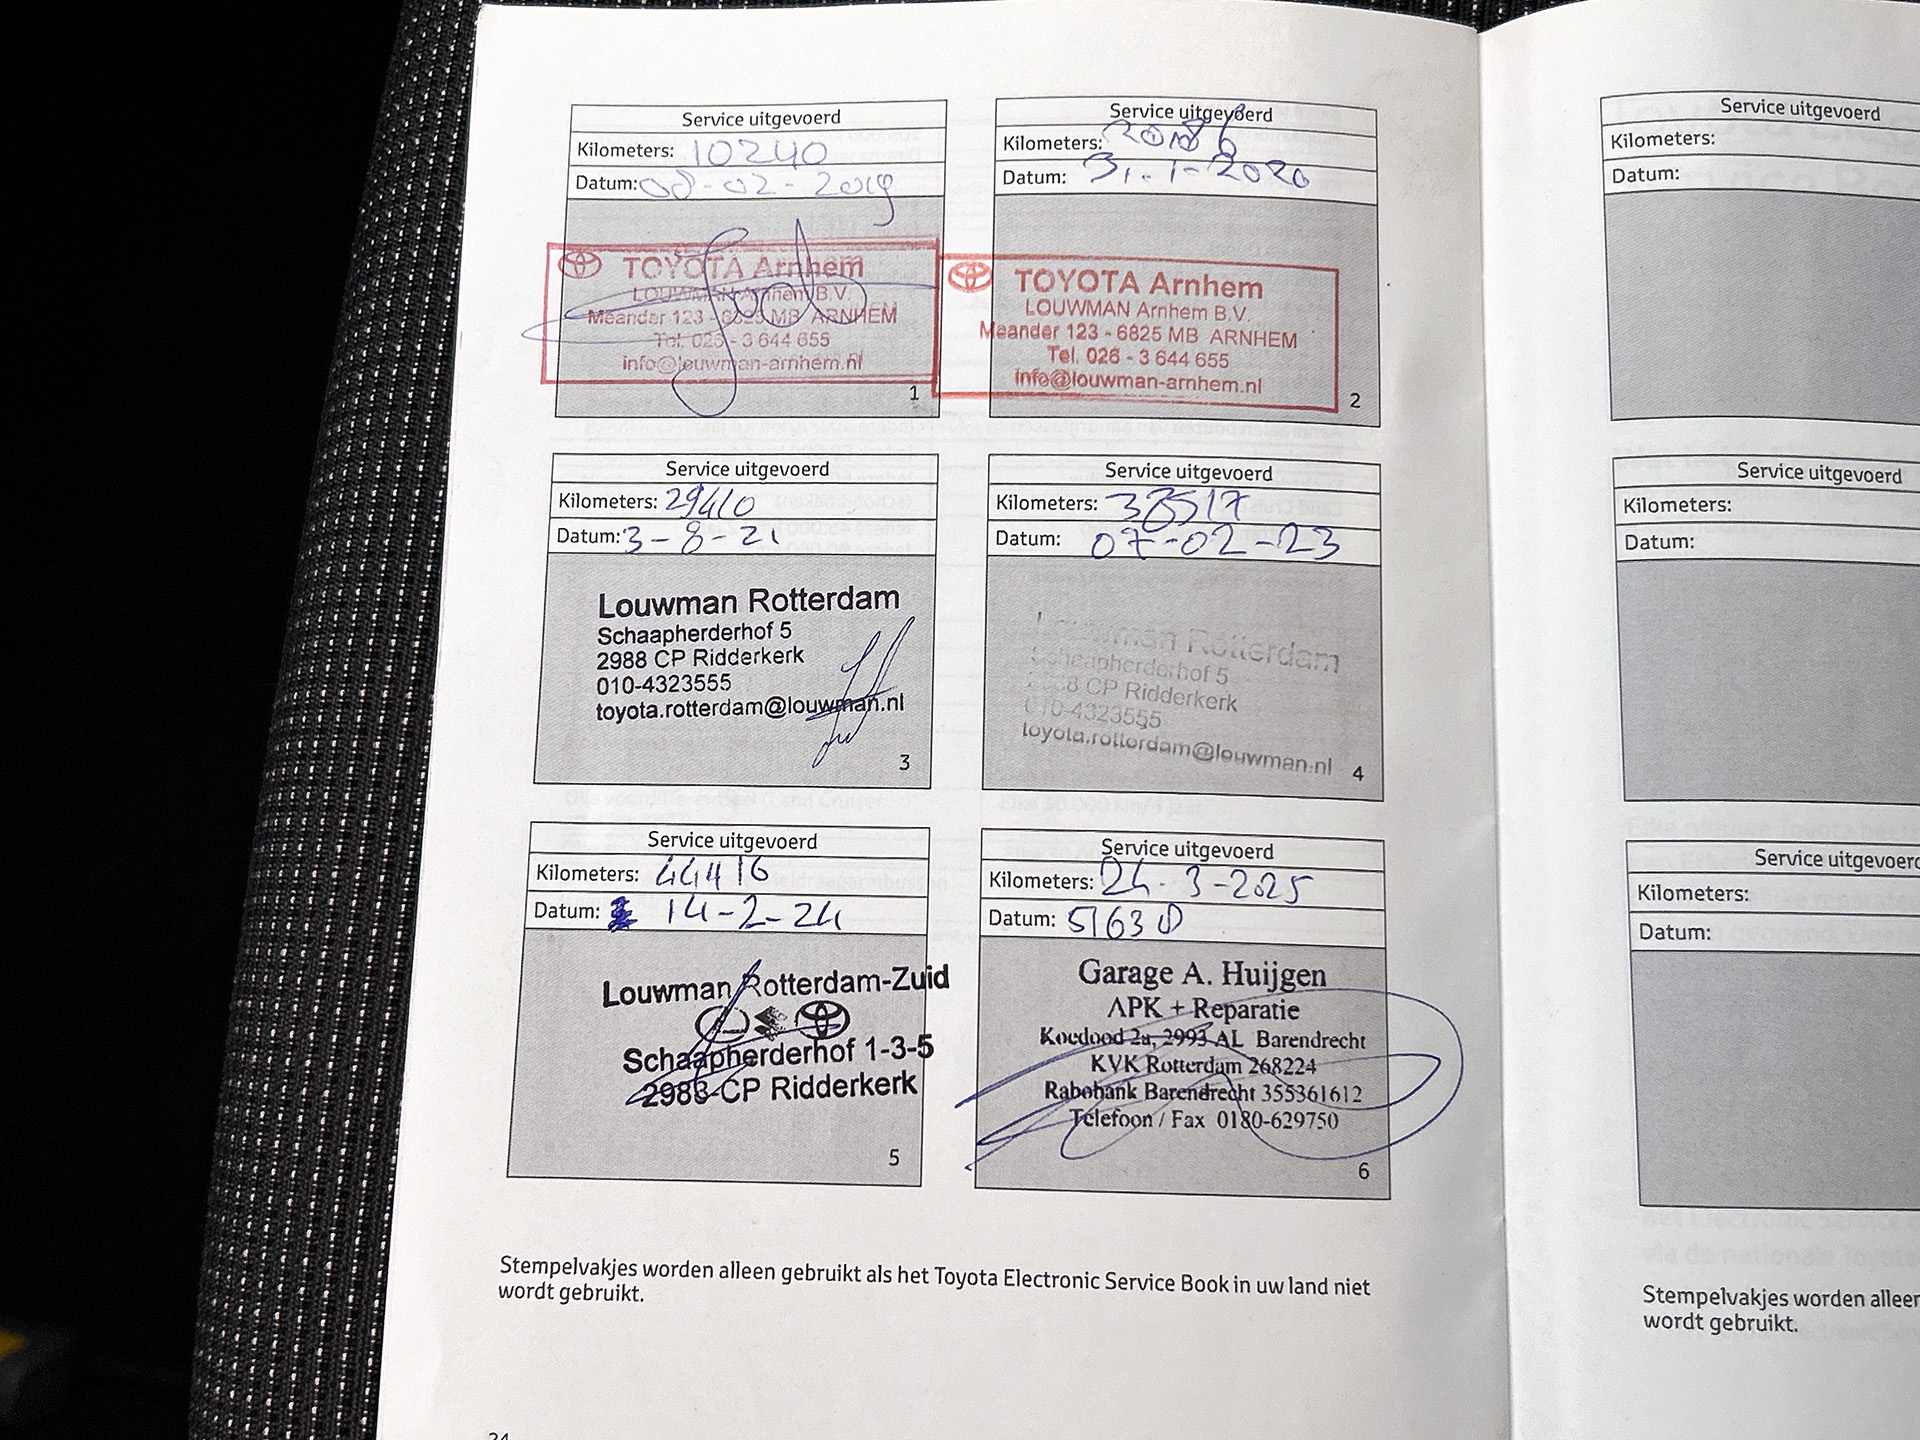 Service uitgevoerd
Kilometers: 10240
Datum: 08-02-2019
TOYOTA Arnhem
LOUWMAN Arnhem B.V.
Meander 123 - 6825 MB ARNHEM
Tel. 026 - 3 644 655
info@louwman-arnhem.nl
1
Service uitgevoerd
Kilometers:
Datum: 31.1-2020
TOYOTA Arnhem
LOUWMAN Arnhem B.V.
Meander 123 - 6825 MB ARNHEM
Tel. 026 - 3 644 655
info@louwman-arnhem.nl
2
Service uitgevoerd
Kilometers: 29410
Datum: 3-8-21
Louwman Rotterdam
Schaapherderhof 5
2988 CP Ridderkerk
010-4323555
toyota.rotterdam@louwman.nl
3
Service uitgevoerd
Kilometers: 38517
Datum: 07-02-23
Louwman Rotterdam
Schaapherderhof 5
2988 CP Ridderkerk
010-4323555
toyota.rotterdam@louwman.nl
4
Service uitgevoerd
Kilometers: 44416
Datum: 14-2-24
Louwman Rotterdam-Zuid
Schaapherderhof 1-3-5
2988 CP Ridderkerk
5
Service uitgevoerd
Kilometers: 24-3-2025
Datum: 51630
Garage A. Huijgen
APK + Reparatie
Koedood 2a, 2993 AL Barendrecht
KVK Rotterdam 268224
Rabobank Barendrecht 355361612
Telefoon / Fax 0180-629750
6
Stempelvakjes worden alleen gebruikt als het Toyota Electronic Service Book in uw land niet
wordt gebruikt.
Service uitgevoerd
Kilometers:
Datum:
Service uitgevoerd
Kilometers:
Datum:
Service uitgevoerd
Kilometers:
Datum:
Stempelvakjes worden alleen
wordt gebruikt.